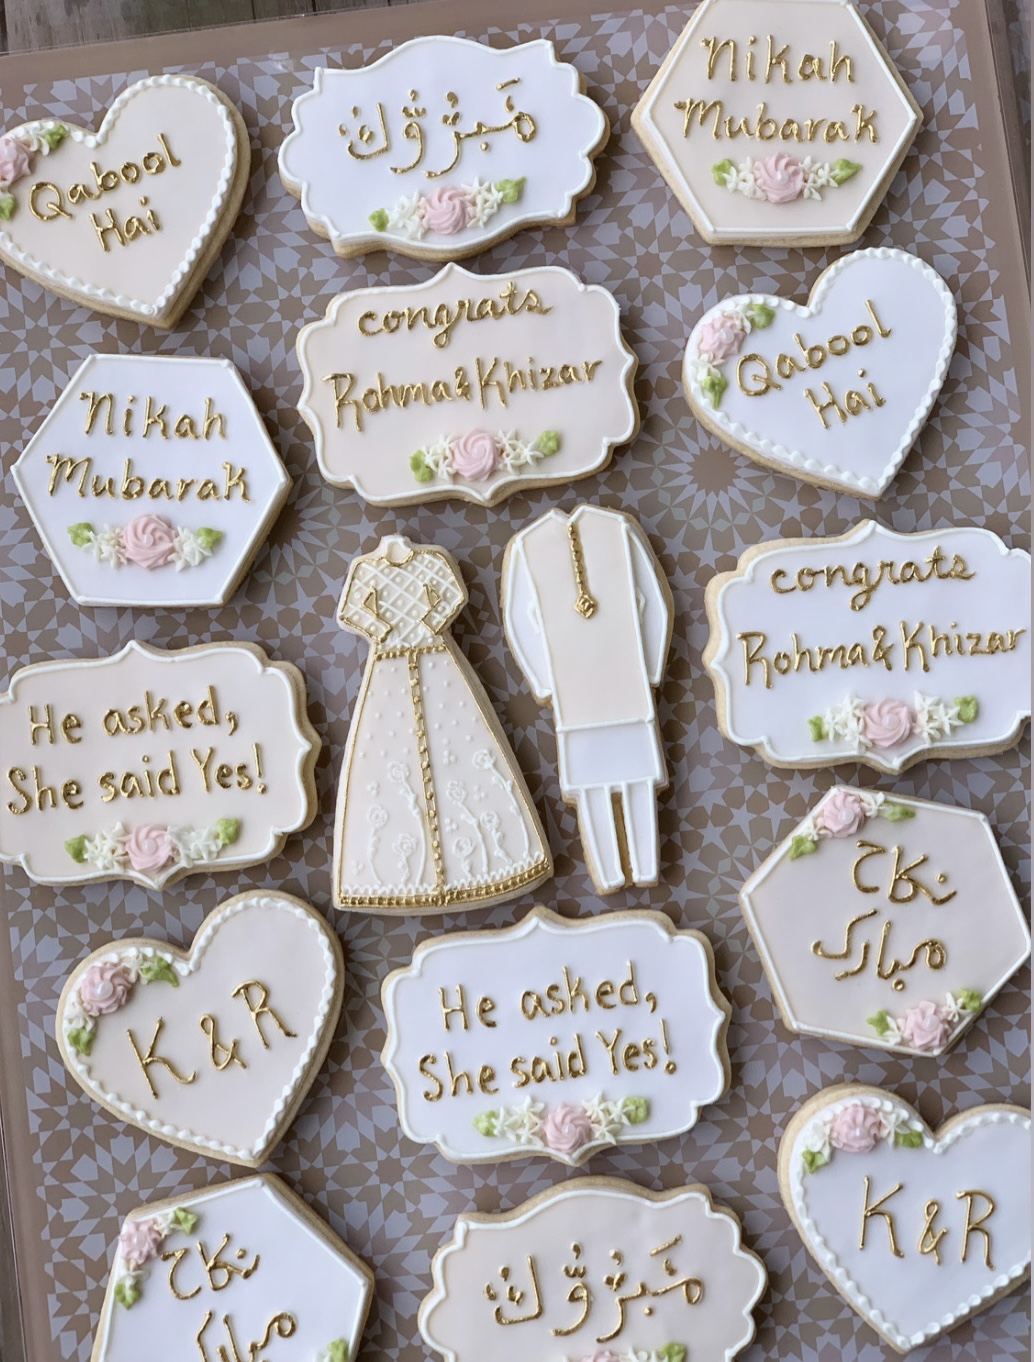 Qabool
Hai
مَبْرُوْك
Nikah
Mubarak
congrats
Rohma & Khizar
Qabool
Hai
Nikah
Mubarak
congrats
Rohma & Khizar
He asked,
She said Yes!
نكاح
مبارک
K & R
He asked,
She said Yes!
K & R
نكاح
مبارک
مَبْرُوْك